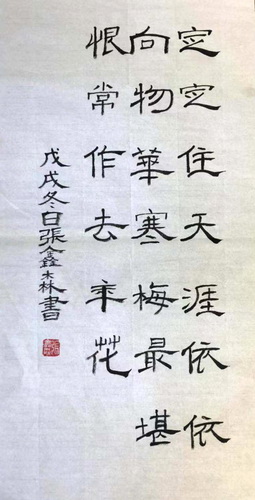 定定住天涯依依
向物華寒梅最堪
恨常作去年花
戊戌冬日張鑫森書